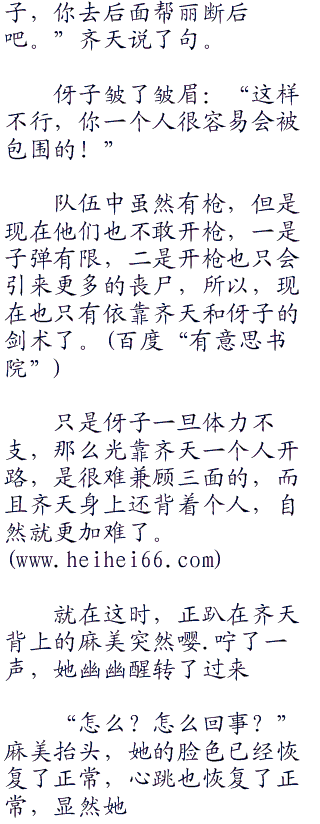 子，你去后面帮丽断后
吧。”齐天说了句。
伢子皱了皱眉：“这样
不行，你一个人很容易会被
包围的！”
队伍中虽然有枪，但是
现在他们也不敢开枪，一是
子弹有限，二是开枪也只会
引来更多的丧尸，所以，现
在也只有依靠齐天和伢子的
剑术了。(百度“有意思书
院”)
只是伢子一旦体力不
支，那么光靠齐天一个人开
路，是很难兼顾三面的，而
且齐天身上还背着个人，自
然就更加难了。
(www.heihei66.com)
就在这时，正趴在齐天
背上的麻美突然嘤.咛了一
声，她幽幽醒转了过来
“怎么？怎么回事？”
麻美抬头，她的脸色已经恢
复了正常，心跳也恢复了正
常，显然她